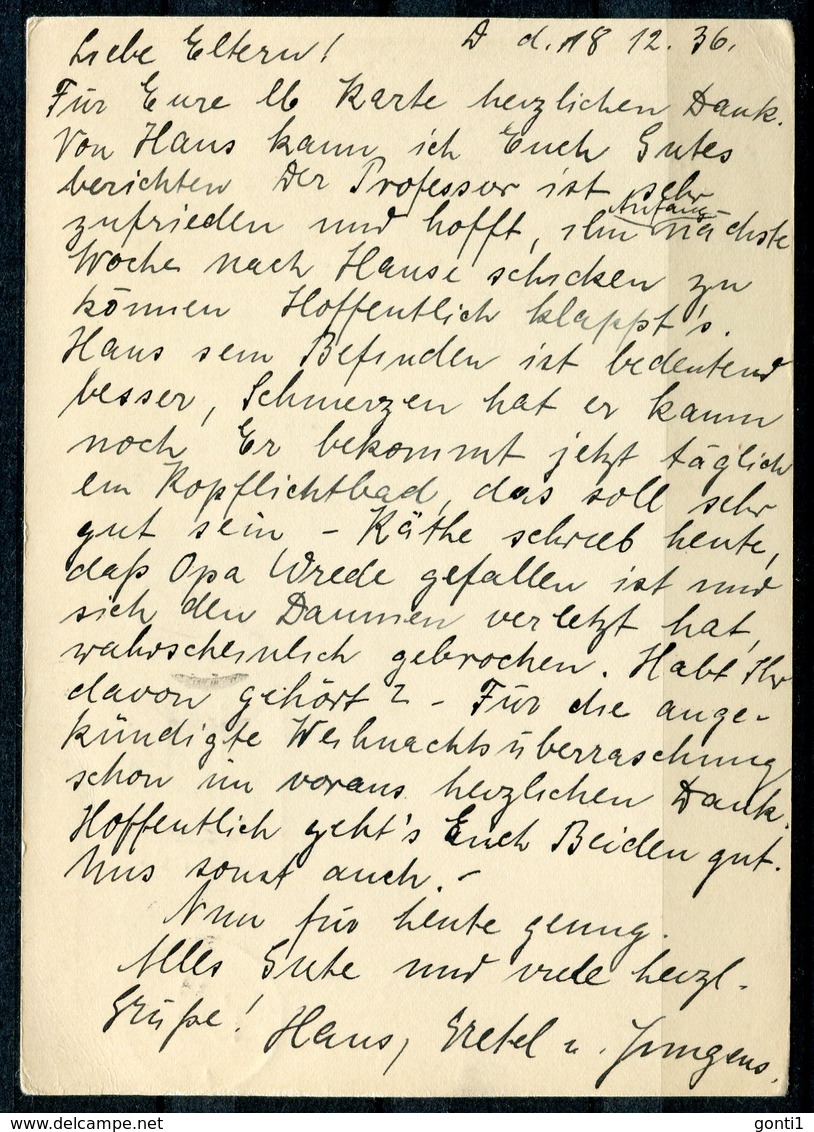 D d. 18 12. 36.
Liebe Eltern!
Für Eure lb Karte herzlichen Dank.
Von Hans kann ich Euch Gutes
berichten Der Professor ist sehr
zufrieden und hofft, ihn Anfang nächste
Woche nach Hause schicken zu
können Hoffentlich klappt's.
Hans sein Befinden ist bedeutend
besser, Schmerzen hat er kaum
noch. Er bekommt jetzt täglich
ein Kopflichtbad, das soll sehr
gut sein – Käthe schrieb heute,
daß Opa Wrede gefallen ist und
sich den Daumen verletzt hat,
wahrscheinlich gebrochen. Habt Ihr
davon gehört? – Für die ange-
kündigte Weihnachtsüberraschung
schon im voraus herzlichen Dank.
Hoffentlich geht's Euch Beiden gut.
Uns sonst auch. –
Nun für heute genug.
Alles Gute und viele herzl.
Grüße! Hans, Gretel u. Jungens.
gonti1